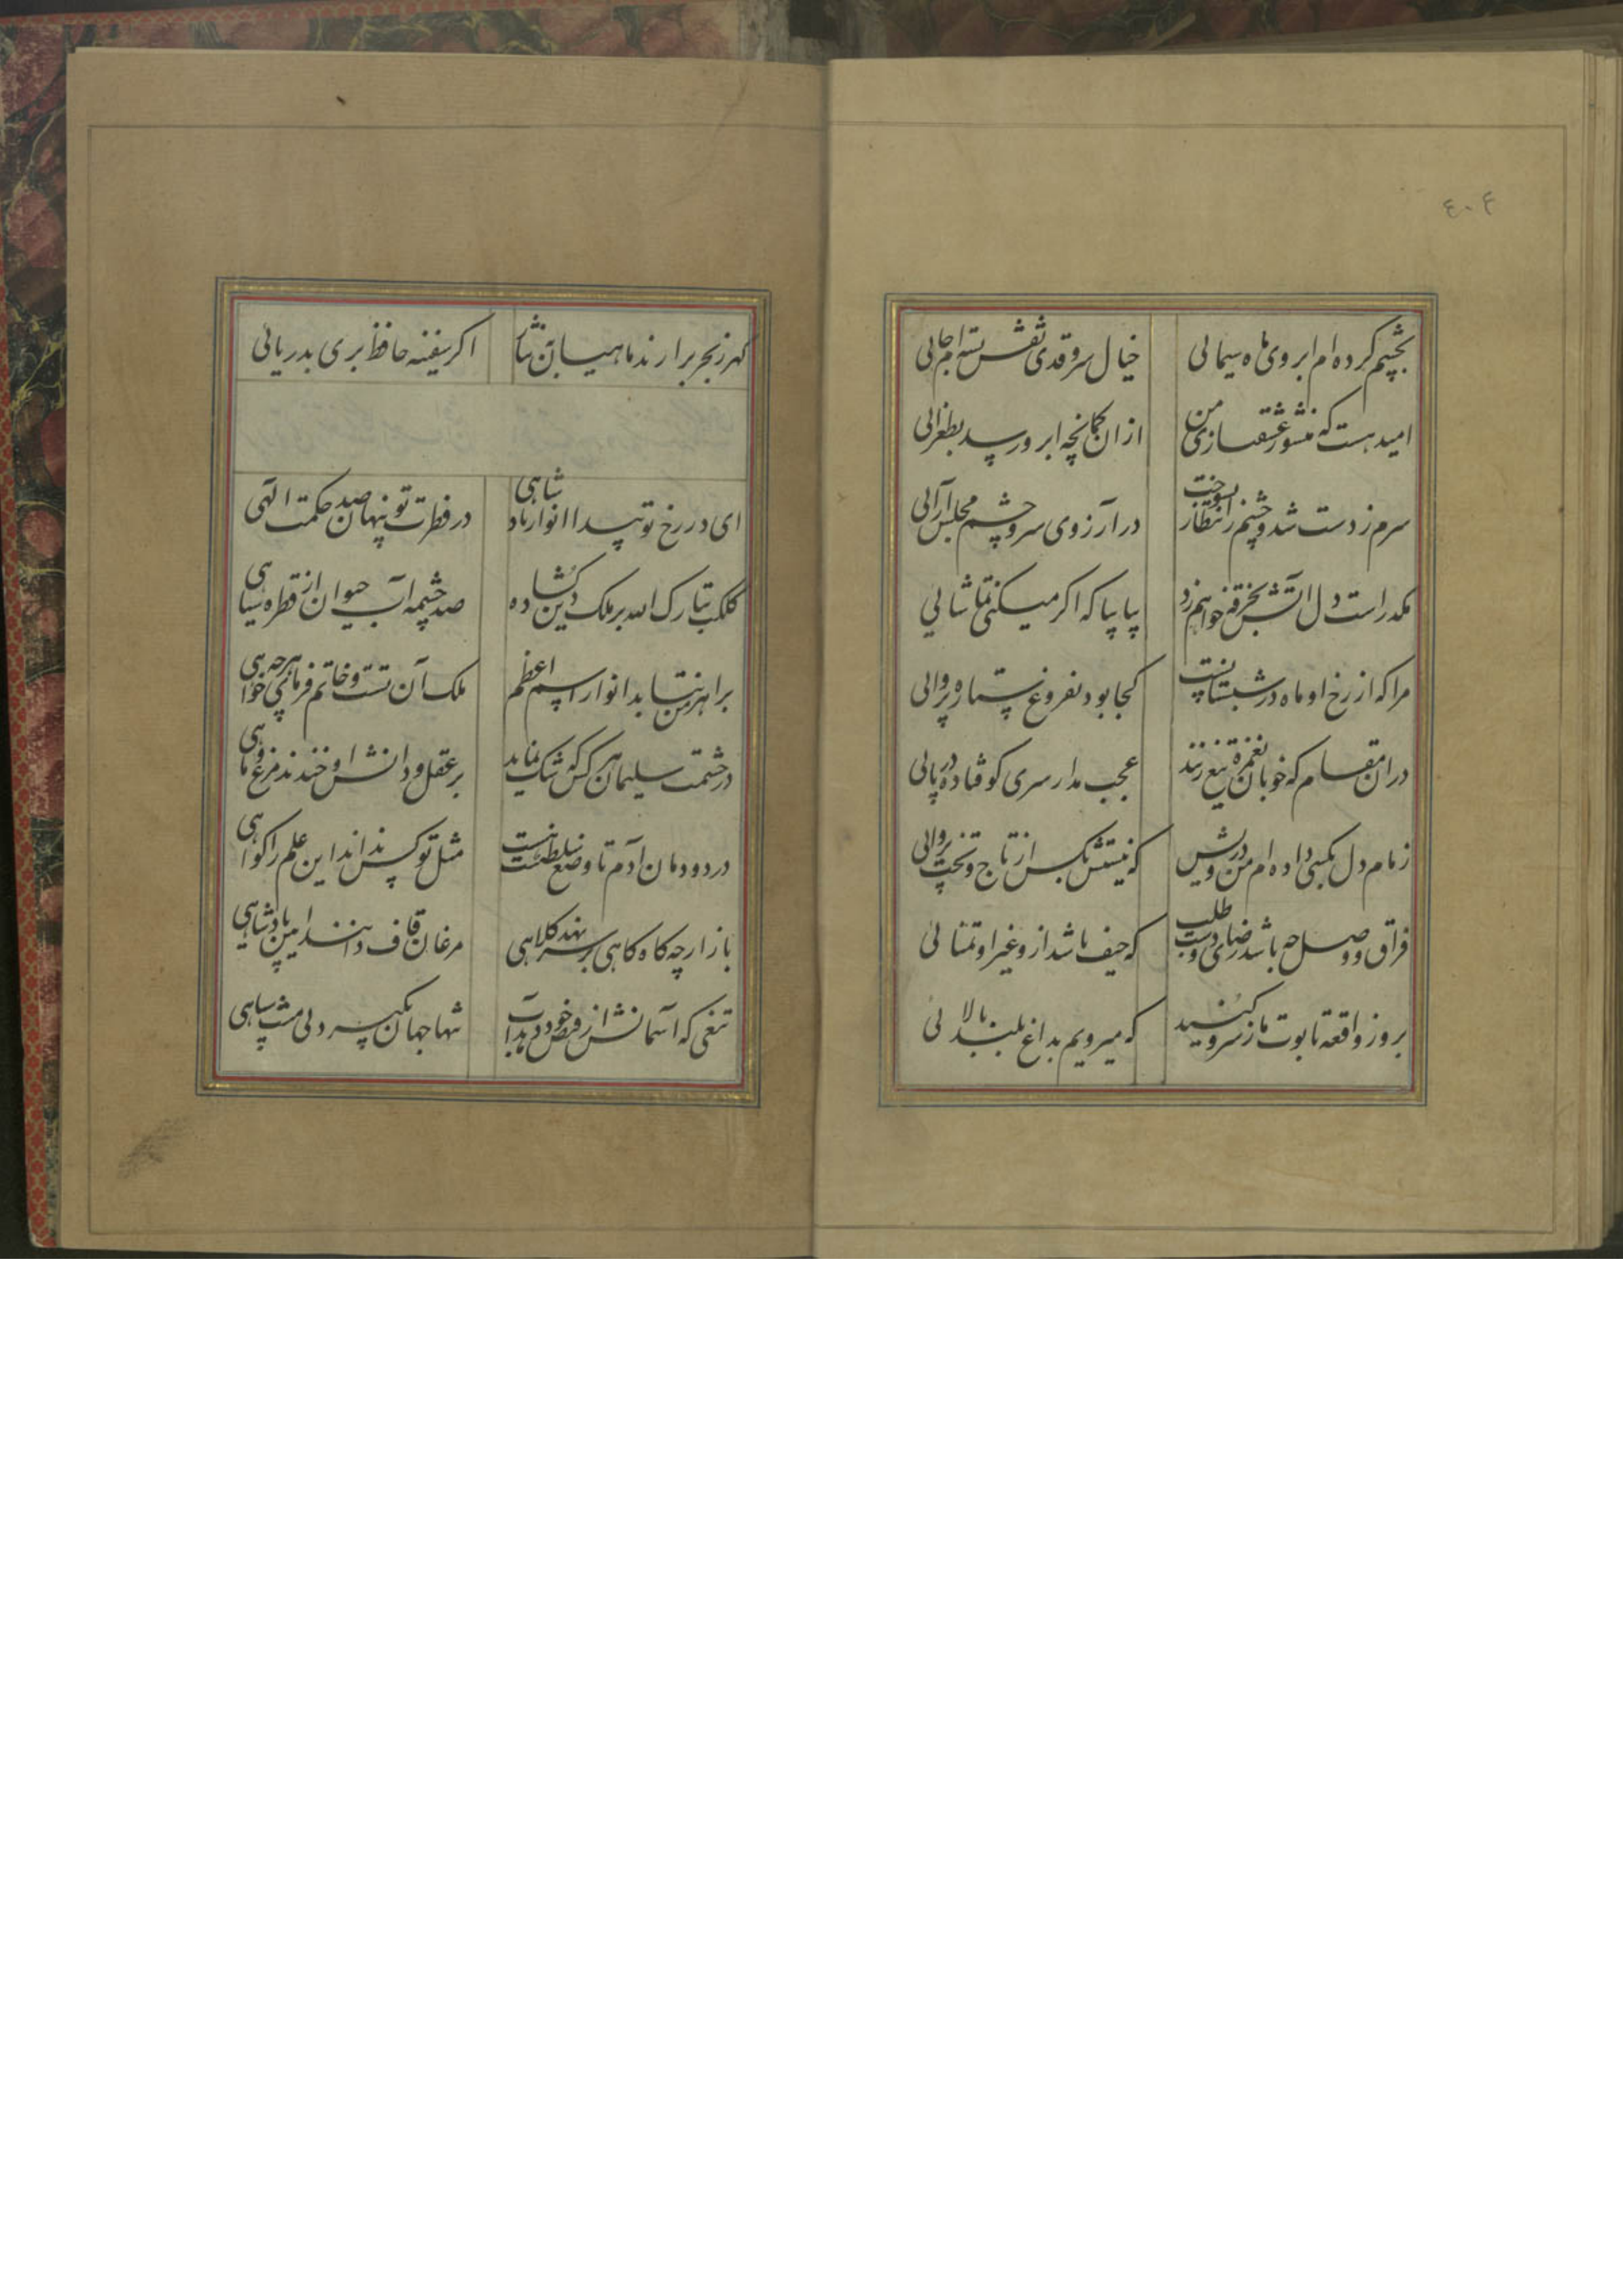 ٤٠٤
بچشم کرده ام ابروی ماه سیمائی خیال سرو قدی نقش بسته ام جائی
امید هست که منشور عشقبازی من ازان کمانچه ابرو رسد بطغرائی
سرم ز دست شد و چشم از انتظار بسوخت در آرزوی سر و چشم مجلس آرائی
مکدر است دل آتش بخرقه خواهم زد بیا بیا که اکر میکنی تماشائی
مرا که از رخ او ماه در شبستانست کجا بود بفروغ ستاره پروائی
دران مقام که خوبان بغمزه تیغ زنند عجب مدار سری کو فتاده در پائی
زمام دل بکسی داده ام من درویش که نیستش بکس از تاج و تخت پروائی
فراق و وصل چه باشد رضای دوست طلب که حیف باشد ازو غیر او تمنائی
بروز واقعه تابوت ما ز سرو کنید که میرویم بداغ بلند بالائی
کهر ز بحر برارند ماهیان بنثار اکر سفینه حافظ بری بدریائی
ای در رخ تو پیدا انوار پادشاهی در فطرت تو پنهان صد حکمت الهی
کلک تبارک الله بر ملک دین کشاده صد چشمه آب حیوان از قطره سیاهی
بر اهرمن نتابد انوار اسم اعظم ملک آن تست و خاتم فرمای هرچه خواهی
در حشمت سلیمان هر کس که شک نماید بر عقل و دانش او خندند مرغ و ماهی
در دودمان آدم تا وضع سلطنت هست مثل تو کس نداند این علم را کواهی
باز ارچه کاه کاهی بر سر نهد کلاهی مرغان قاف دانند آیین پادشاهی
تیغی که آسمانش از فیض خود دهد آب تنها جهان بگیرد بی منت سپاهی